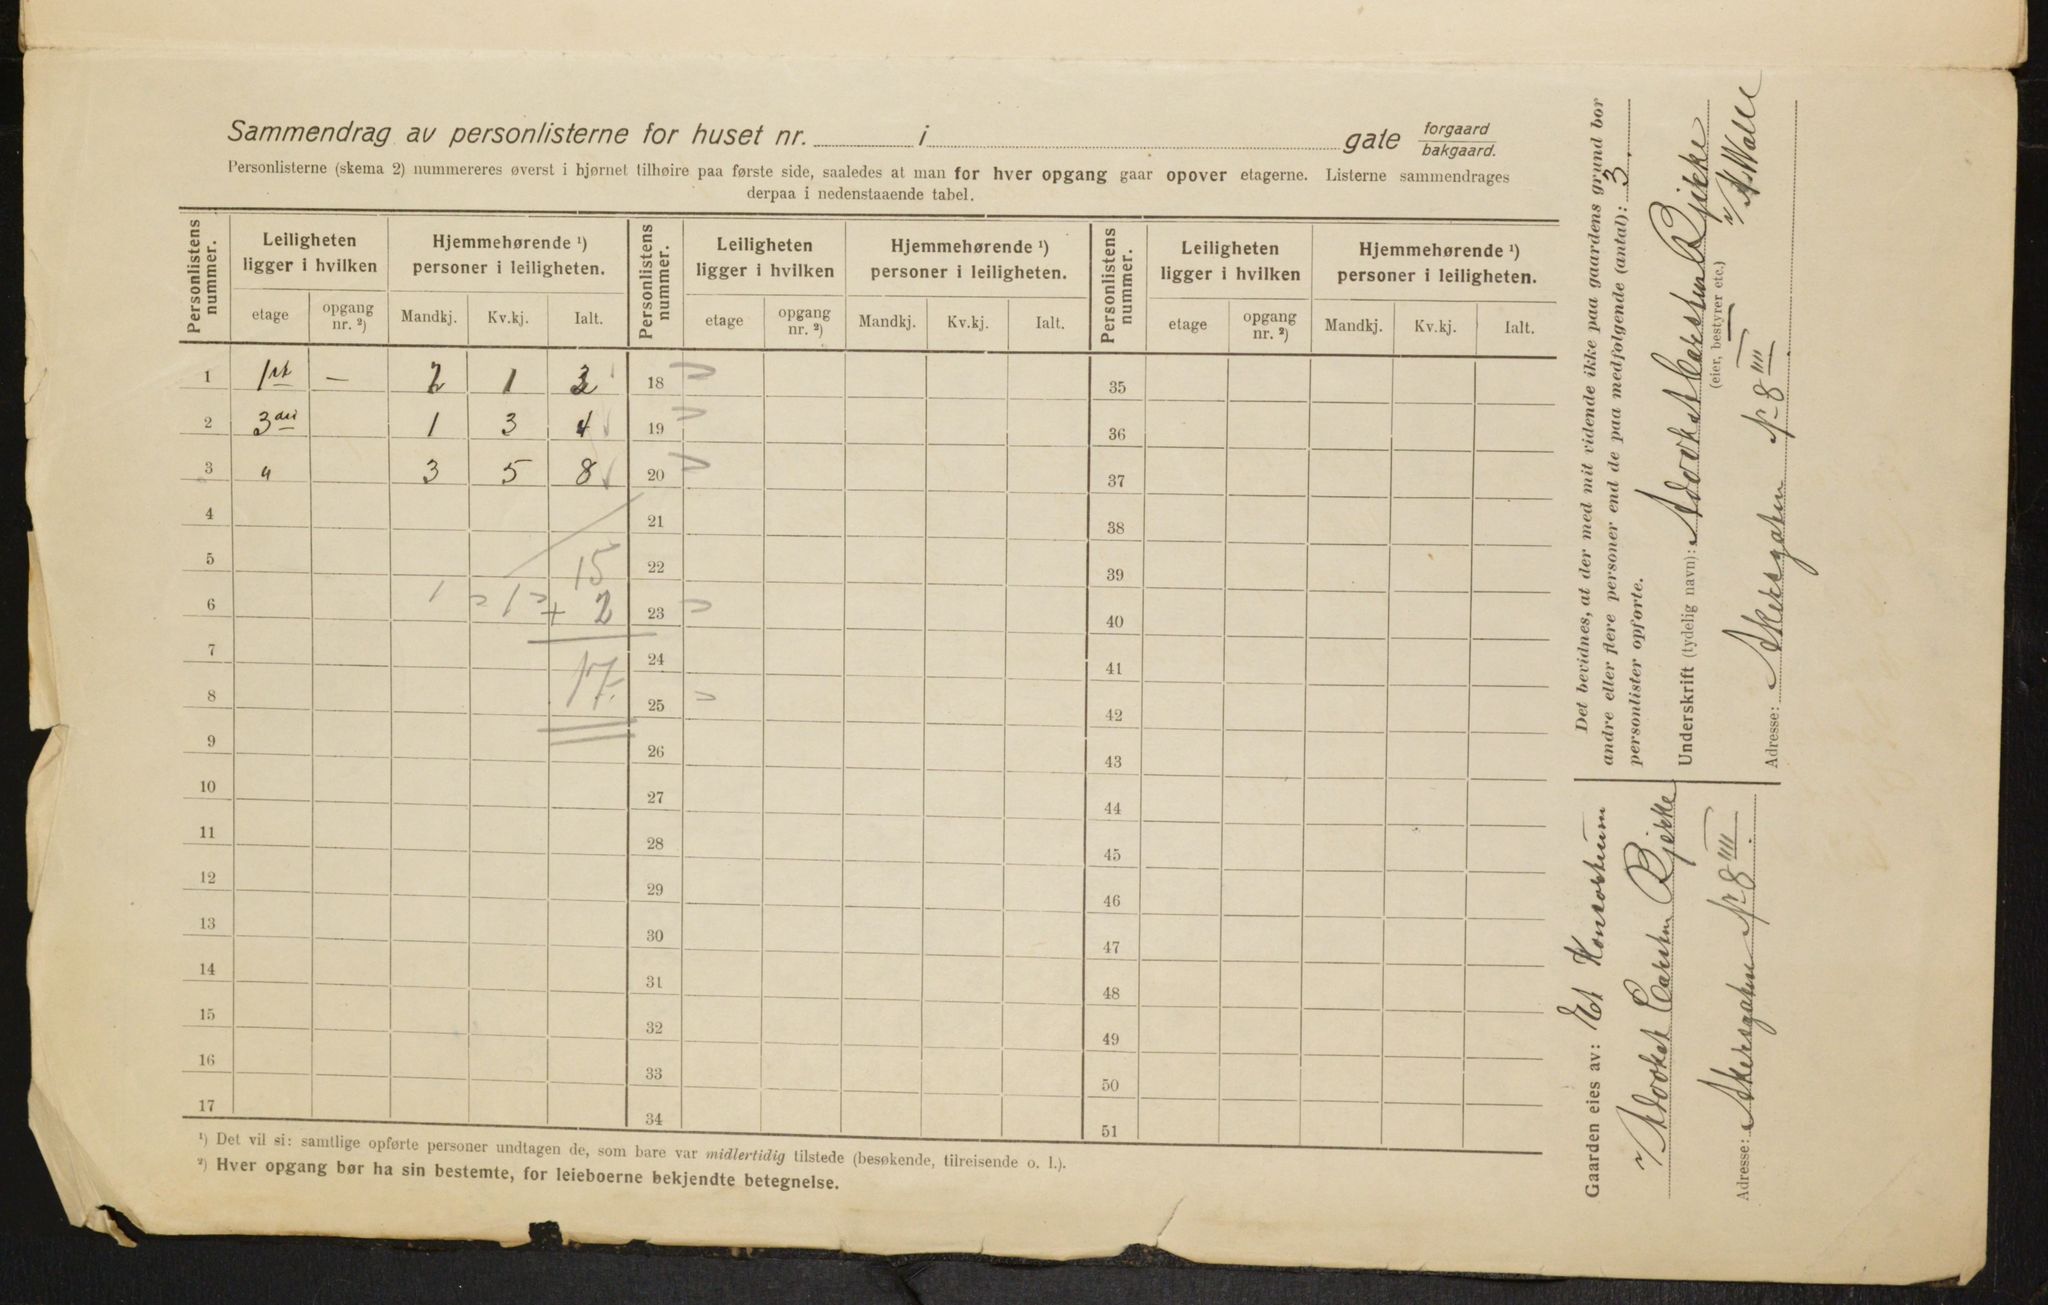 Sammendrag av personlisterne for huset nr. i gate forgaard bakgaard.
Personlisterne (skema 2) nummereres øverst i hjørnet tilhøire paa første side, saaledes at man for hver opgang gaar opover etagerne. Listerne sammendrages
derpaa i nedenstaaende tabel.
Personlistens nummer. Leiligheten ligger i hvilken Hjemmehørende ¹) personer i leiligheten. Personlistens nummer. Leiligheten ligger i hvilken Hjemmehørende ¹) personer i leiligheten. Personlistens nummer. Leiligheten ligger i hvilken Hjemmehørende ¹) personer i leiligheten.
etage opgang nr. ²) Mandkj. Kv.kj. Ialt. etage opgang nr. ²) Mandkj. Kv.kj. Ialt. etage opgang nr. ²) Mandkj. Kv.kj. Ialt.
1 1ste — 2 1 3 18 35
2 3die 1 3 4 19 36
3 " 3 5 8 20 37
4 21 38
5 15 22 39
6 1 1 + 2 23 40
7 17. 24 41
8 25 42
9 26 43
10 27 44
11 28 45
12 29 46
13 30 47
14 31 48
15 32 49
16 33 50
17 34 51
¹) Det vil si: samtlige opførte personer undtagen de, som bare var midlertidig tilstede (besøkende, tilreisende o. l.).
²) Hver opgang bør ha sin bestemte, for leieboerne bekjendte betegnelse.
Det bevidnes, at der med mit vidende ikke paa gaardens grund bor
andre eller flere personer end de paa medfølgende (antal): 3.
personlister opførte.
Underskrift (tydelig navn): Advokat Carsten Bjerke
(eier, bestyrer etc.)
Adresse: Akersgaten No 8 IIII
Gaarden eies av: Et Konsortium
v/ Advokat Carsten Bjerke
Adresse: Akersgaten No 8 IIII